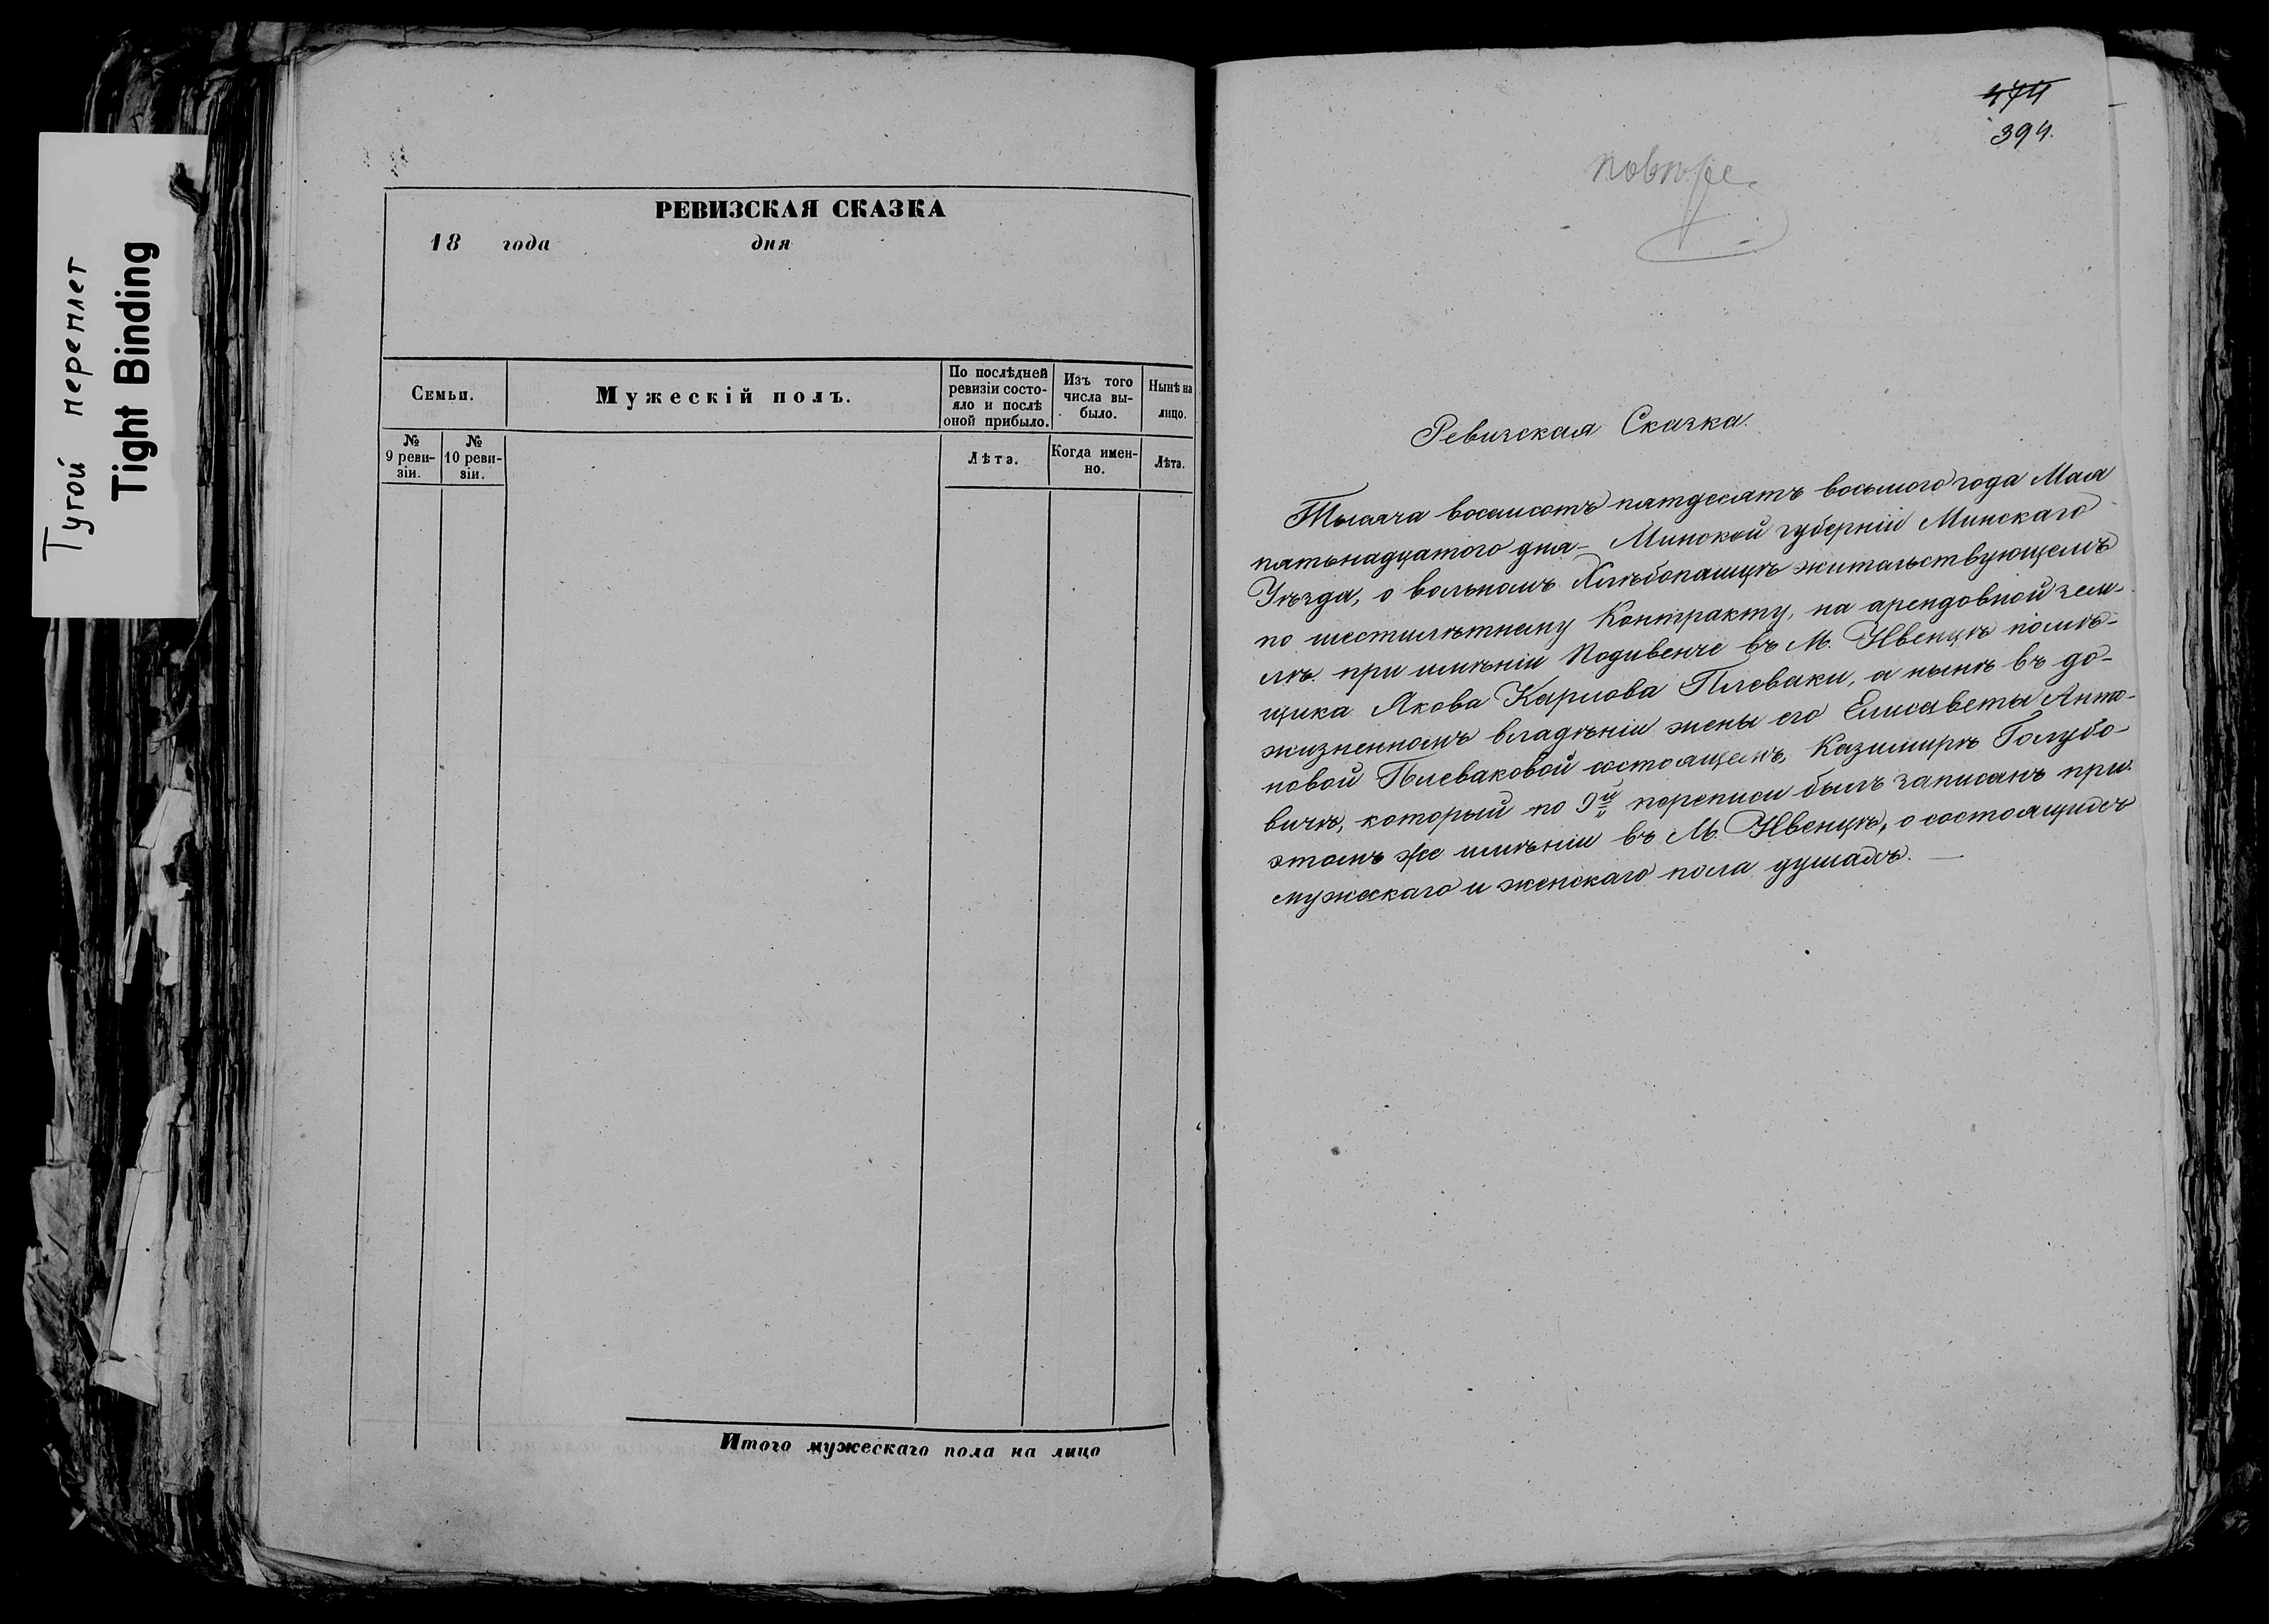 Тугой переплет
Tight Binding
РЕВИЗСКАЯ СКАЗКА
18 года дня
Семьи.
Мужескій полъ.
По послѣдней
ревизіи состо-
яло и послѣ
оной прибыло.
Изъ того
числа вы-
было.
Нынѣ на
лицо.
№
9 реви-
зіи.
№
10 реви-
зіи.
Лѣта.
Когда имен-
но.
Лѣта.
Итого мужескаго пола на лицо
474
394.
Ревизская Сказка.
Тысяча восемсотъ пятдесятъ восьмого года Мая
пятьнадцатого дня – Минской губерніи Минскаго
Уѣзда, о вольномъ Хлѣбопашцѣ жительствующемъ
по шестилѣтнему Контракту, на арендовной зем-
лѣ при имѣніи Подивенче въ М. Ивенцѣ помѣ-
щика Якова Карлова Плеваки, а нынѣ въ до-
жизненномъ владѣніи жены его Елисаветы Анто-
новой Плеваковой состоящемъ, Казимирѣ Голубо-
вичѣ, который по 9й переписи былъ записанъ при
этомъ же имѣніи въ М. Ивенцѣ, о состоящихъ
мужескаго и женскаго пола душахъ. —